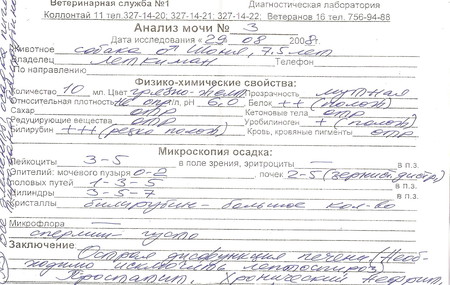 Ветеринарная служба №1 Диагностическая лаборатория
Коллонтай 11 тел.327-14-20; 327-14-21; 327-14-22; Ветеранов 16 тел. 756-94-88
Анализ мочи № 3
Дата исследования «29» 08 2008г.
Животное собака 7,5 лет
Владелец Телефон
По направлению
Физико-химические свойства:
Количество 10 мл. Цвет грязно-желт Прозрачность мутная
Относительная плотность не опр г/л, pH 6,0 Белок ++ (полож)
Сахар отр Кетоновые тела отр
Редуцирующие вещества отр Уробилиноген + (полож)
Билирубин +++ (резко полож) Кровь, кровяные пигменты отр
Микроскопия осадка:
Лейкоциты 3-5 в поле зрения, эритроциты — в п.з.
Эпителий: мочевого пузыря 0-2 почек 2-5 (зернист. дистр)
половых путей 1-3-5 в п.з.
Цилиндры 3-5-7 в п.з.
Кристаллы билирубин - большое кол-во
Микрофлора —
спермии - густо
Заключение: Острая дисфункция печени (Необ-
ходимо исключить лептоспироз)
Простатит. Хронический нефрит.